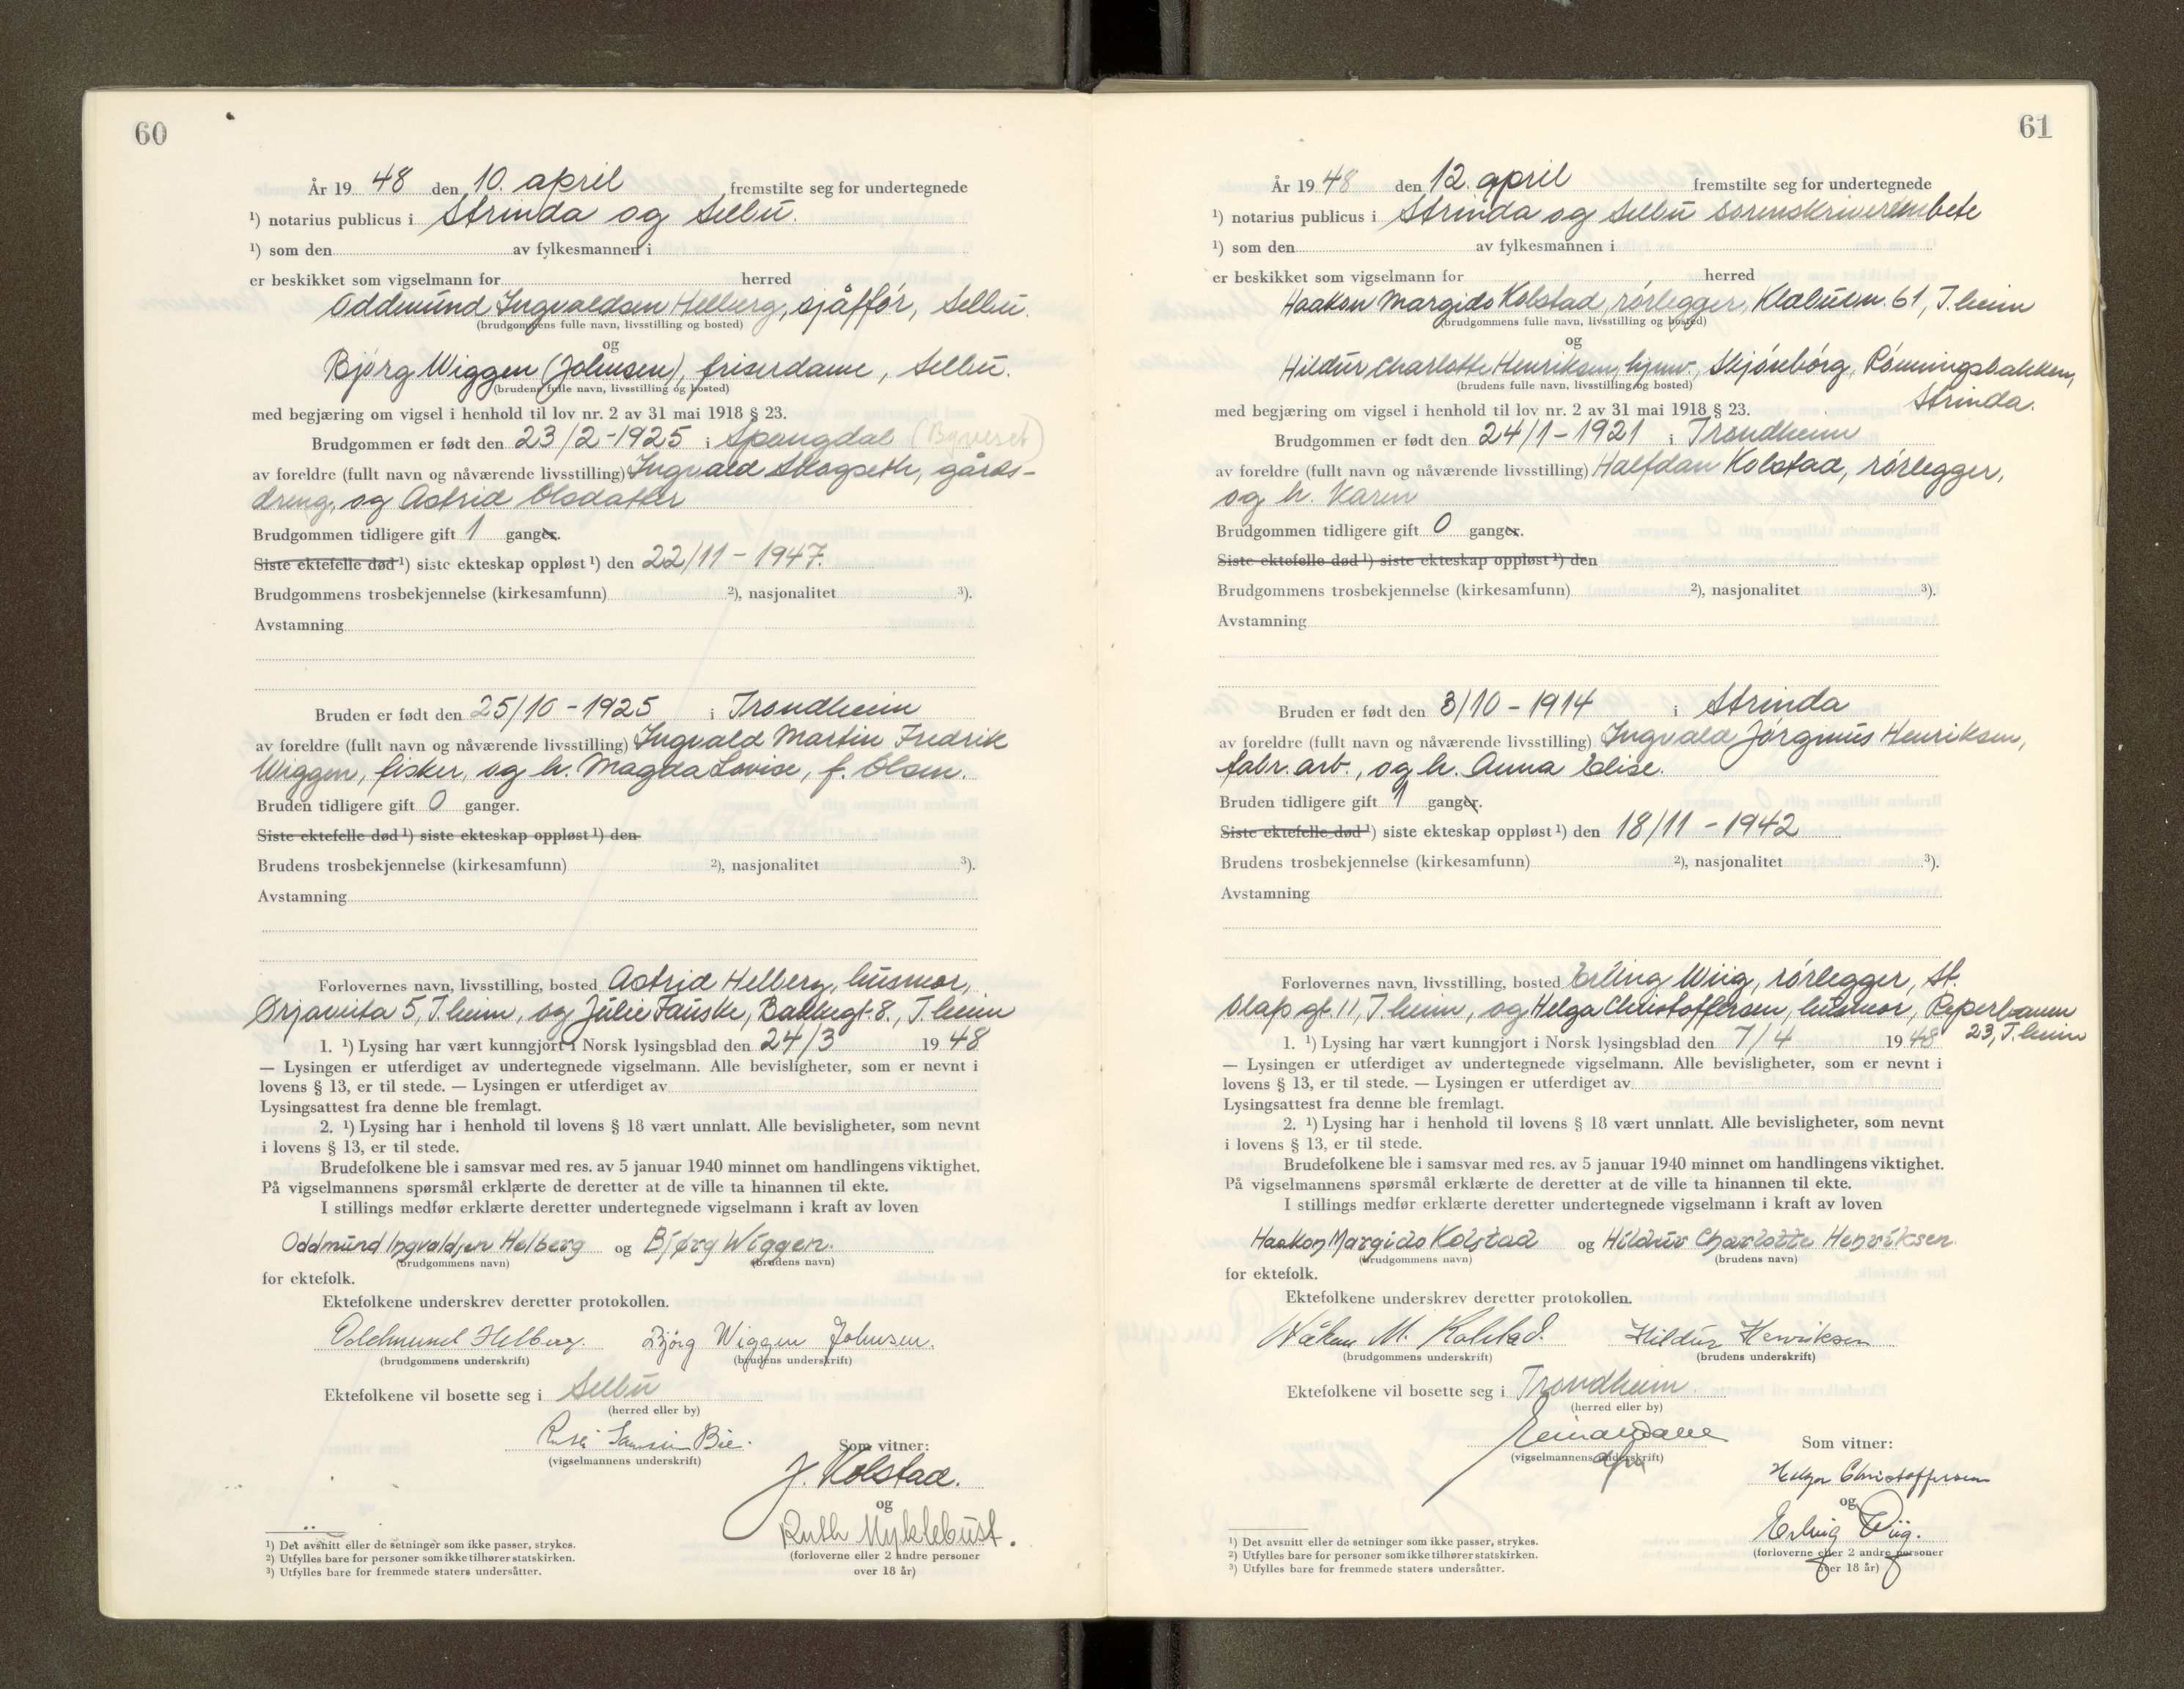 60
År 19 48 den 10. april fremstilte seg for undertegnede
¹) notarius publicus i Strinda og Selbu.
¹) som den av fylkesmannen i
er beskikket som vigselmann for herred
Oddmund Ingvaldsen Helberg, sjåffør, Selbu.
(brudgommens fulle navn, livsstilling og bosted)
og
Bjørg Wiggen (Johnsen), friserdame, Selbu.
(brudens fulle navn, livsstilling og bosted)
med begjæring om vigsel i henhold til lov nr. 2 av 31 mai 1918 § 23.
Brudgommen er født den 23/2-1925 i Spongdal (Byneset)
av foreldre (fullt navn og nåværende livsstilling) Ingvald Skogseth, gårds-
dreng, og Astrid Olsdatter
Brudgommen tidligere gift 1 ganger.
Siste ektefelle død ¹) siste ekteskap oppløst ¹) den 22/11-1947.
Brudgommens trosbekjennelse (kirkesamfunn) ²), nasjonalitet ³).
Avstamning
Bruden er født den 25/10-1925 i Trondheim
av foreldre (fullt navn og nåværende livsstilling) Ingvald Martin Fredrik
Wiggen, fisker, og h. Magda Lovise, f. Olsen.
Bruden tidligere gift 0 ganger.
Siste ektefelle død ¹) siste ekteskap oppløst ¹) den
Brudens trosbekjennelse (kirkesamfunn) ²), nasjonalitet ³).
Avstamning
Forlovernes navn, livsstilling, bosted Astrid Helberg, husmor,
Ørjavita 5, T.heim, og Julie Fauske, Bakkegt. 8., T.heim
1. ¹) Lysing har vært kunngjort i Norsk lysingsblad den 24/3 19 48
— Lysingen er utferdiget av undertegnede vigselmann. Alle bevisligheter, som er nevnt i
lovens § 13, er til stede. — Lysingen er utferdiget av
Lysingsattest fra denne ble fremlagt.
2. ¹) Lysing har i henhold til lovens § 18 vært unnlatt. Alle bevisligheter, som nevnt
i lovens § 13, er til stede.
Brudefolkene ble i samsvar med res. av 5 januar 1940 minnet om handlingens viktighet.
På vigselmannens spørsmål erklærte de deretter at de ville ta hinannen til ekte.
I stillings medfør erklærte deretter undertegnede vigselmann i kraft av loven
Oddmund Ingvaldsen Helberg og Bjørg Wiggen.
(brudgommens navn) (brudens navn)
for ektefolk.
Ektefolkene underskrev deretter protokollen.
Oddmund Helberg. Bjørg Wiggen Johnsen.
(brudgommens underskrift) (brudens underskrift)
Ektefolkene vil bosette seg i Selbu
(herred eller by)
Bie.
(vigselmannens underskrift)
Som vitner:
J. Kolstad.
og
Ruth Myklebust.
(forloverne eller 2 andre personer
over 18 år)
¹) Det avsnitt eller de setninger som ikke passer, strykes.
²) Utfylles bare for personer som ikke tilhører statskirken.
³) Utfylles bare for fremmede staters undersåtter.
61
År 19 48 den 12. april fremstilte seg for undertegnede
¹) notarius publicus i Strinda og Selbu sorenskriverembete
¹) som den av fylkesmannen i
er beskikket som vigselmann for herred
Haakon Margido Kolstad, rørlegger, Klæbuvn. 61, T.heim
(brudgommens fulle navn, livsstilling og bosted)
og
Hildur Charlotte Henriksen, hjmv., Skjønborg, Rønningsbakken,
Strinda.
(brudens fulle navn, livsstilling og bosted)
med begjæring om vigsel i henhold til lov nr. 2 av 31 mai 1918 § 23.
Brudgommen er født den 24/1-1921 i Trondheim
av foreldre (fullt navn og nåværende livsstilling) Halfdan Kolstad, rørlegger,
og h. Karen
Brudgommen tidligere gift 0 ganger.
Siste ektefelle død ¹) siste ekteskap oppløst ¹) den
Brudgommens trosbekjennelse (kirkesamfunn) ²), nasjonalitet ³).
Avstamning
Bruden er født den 3/10-1914 i Strinda
av foreldre (fullt navn og nåværende livsstilling) Ingvald Jørginus Henriksen,
fabr. arb., og h. Anna Elise.
Bruden tidligere gift 1 ganger.
Siste ektefelle død ¹) siste ekteskap oppløst ¹) den 18/11-1942
Brudens trosbekjennelse (kirkesamfunn) ²), nasjonalitet ³).
Avstamning
Forlovernes navn, livsstilling, bosted Erling Wiig, rørlegger, St.
Olafs gt. 11, T.heim, og Helga Christoffersen, husmor, Reperbanen
23, T.heim
1. ¹) Lysing har vært kunngjort i Norsk lysingsblad den 7/4 19 48
— Lysingen er utferdiget av undertegnede vigselmann. Alle bevisligheter, som er nevnt i
lovens § 13, er til stede. — Lysingen er utferdiget av
Lysingsattest fra denne ble fremlagt.
2. ¹) Lysing har i henhold til lovens § 18 vært unnlatt. Alle bevisligheter, som nevnt
i lovens § 13, er til stede.
Brudefolkene ble i samsvar med res. av 5 januar 1940 minnet om handlingens viktighet.
På vigselmannens spørsmål erklærte de deretter at de ville ta hinannen til ekte.
I stillings medfør erklærte deretter undertegnede vigselmann i kraft av loven
Haakon Margido Kolstad og Hildur Charlotte Henriksen
(brudgommens navn) (brudens navn)
for ektefolk.
Ektefolkene underskrev deretter protokollen.
Håkon M. Kolstad. Hildur Henriksen
(brudgommens underskrift) (brudens underskrift)
Ektefolkene vil bosette seg i Trondheim.
(herred eller by)
(vigselmannens underskrift)
Som vitner:
Helga Christoffersen
og
Erling Wiig.
(forloverne eller 2 andre personer
over 18 år)
¹) Det avsnitt eller de setninger som ikke passer, strykes.
²) Utfylles bare for personer som ikke tilhører statskirken.
³) Utfylles bare for fremmede staters undersåtter.